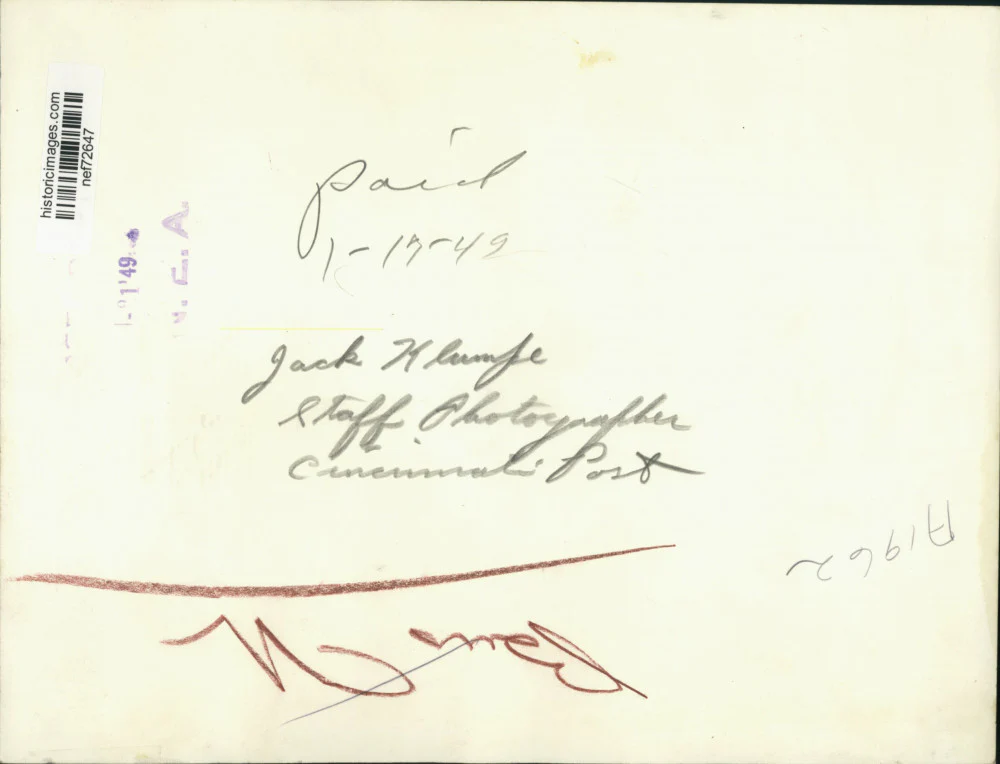 historicimages.com
nef72647
1'49
E.A.
Paid
1-17-49
Jack Klumpe
Staff Photographer
Cincinnati Post
A1962